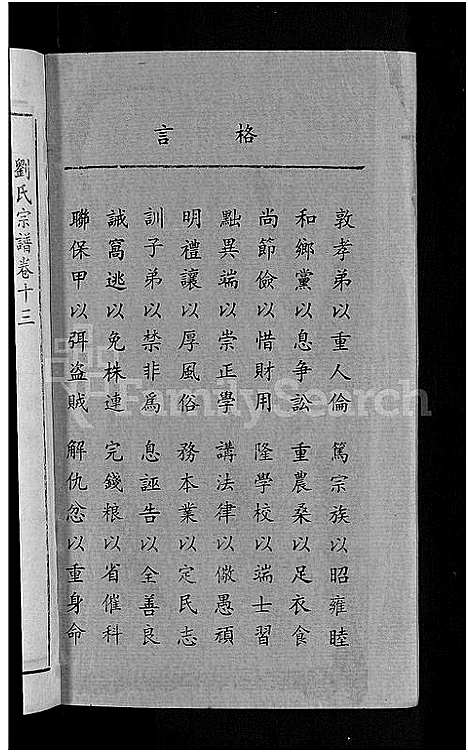 格言
敦孝弟以重人倫　篤宗族以昭雍睦
和鄉黨以息爭訟　重農桑以足衣食
尚節儉以惜財用　隆學校以端士習
黜異端以崇正學　講法律以儆愚頑
明禮讓以厚風俗　務本業以定民志
訓子弟以禁非為　息誣告以全善良
誡窩逃以免株連　完錢粮以省催科
聯保甲以弭盜賊　解仇忿以重身命
劉氏宗譜卷十三
FamilySearch